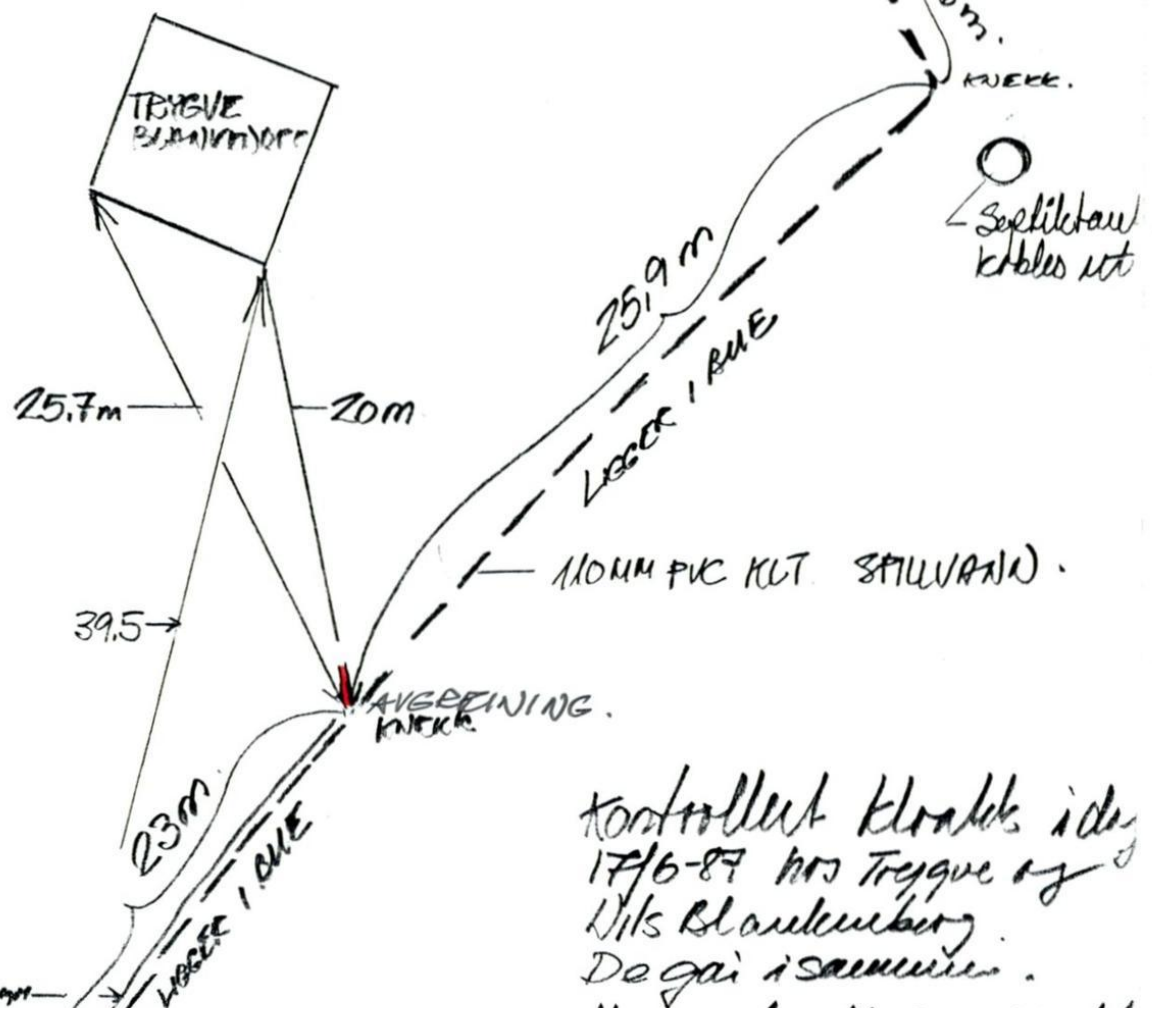 m.
KNEKK.
TRYGVE
Septiktank
kobles ut
25,9 m
LIGGER I BUE
25.7m
20m
110MM PVC KLT SPILLVANN.
39.5
AVGREINING.
KNEKK
23m
LIGGER I BUE
Kontrollert kloakk idag
17/6-87 hos Trygve og
Nils Blankenberg.
De går i sammen.